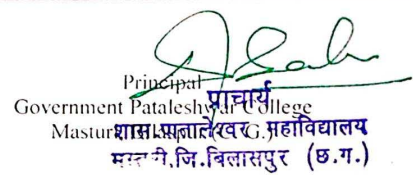 Principal
प्राचार्य
Government Pataleshwar College
शास. पातालेश्वर महाविद्यालय
मस्तुरी,जि.बिलासपुर (छ.ग.)